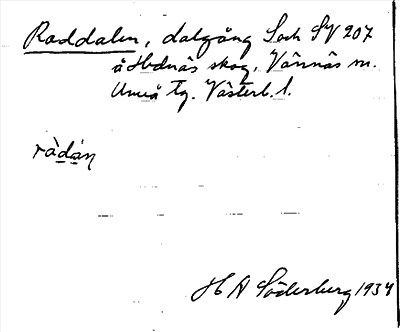 Roddalen, dalgång S och SV 207
å Hednäs skog, Vännäs sn.
Umeå tg. Västerb. l.
ròdán
H A Söderberg 1934